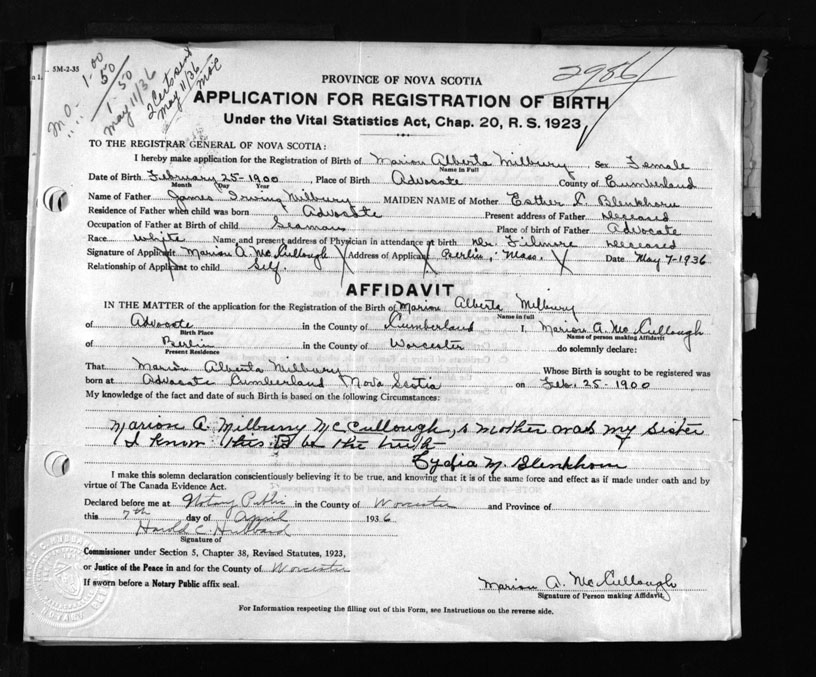 5M-2-35
M.O. 1.00
" " .50
1.50
May 11/36
2 Certs sent
May 11/36
McC
2986
PROVINCE OF NOVA SCOTIA
APPLICATION FOR REGISTRATION OF BIRTH
Under the Vital Statistics Act, Chap. 20, R. S. 1923
TO THE REGISTRAR GENERAL OF NOVA SCOTIA:
I hereby make application for the Registration of Birth of Marion Alberta Milbury, Sex Female
Name in Full
Date of Birth February 25-1900, Place of Birth Advocate County of Cumberland
Month Day Year
Name of Father James Irving Milbury MAIDEN NAME of Mother Esther L. Blenkhorn
Residence of Father when child was born Advocate Present address of Father Deceased
Occupation of Father at Birth of child Seaman Place of birth of Father Advocate
Race White Name and present address of Physician in attendance at birth Dr. Filmore Deceased
Signature of Applicant Marion A. McCullough Address of Applicant Berlin, Mass. Date May 7-1936
Relationship of Applicant to child Self.
AFFIDAVIT
IN THE MATTER of the application for the Registration of the Birth of Marion Alberta Milbury
Name in full
of Advocate in the County of Cumberland I, Marion A. McCullough
Birth Place Name of person making Affidavit
of Berlin in the County of Worcester do solemnly declare:
Present Residence
That Marion Alberta Milbury Whose Birth is sought to be registered was
born at Advocate Cumberland Nova Scotia on Feb. 25-1900
My knowledge of the fact and date of such Birth is based on the following Circumstances:
Marion A. Milbury McCullough, s mother was my sister
I know this to be the truth
Lydia M. Blenkhorn
I make this solemn declaration conscientiously believing it to be true, and knowing that it is of the same force and effect as if made under oath and by
virtue of The Canada Evidence Act.
Declared before me at Notary Public in the County of Worcester and Province of
this 7th day of April 1936
Harold C. Hubbard
Signature of
Commissioner under Section 5, Chapter 38, Revised Statutes, 1923,
or Justice of the Peace in and for the County of Worcester
If sworn before a Notary Public affix seal.
Marion A. McCullough
Signature of Person making Affidavit,
For Information respecting the filling out of this Form, see Instructions on the reverse side.